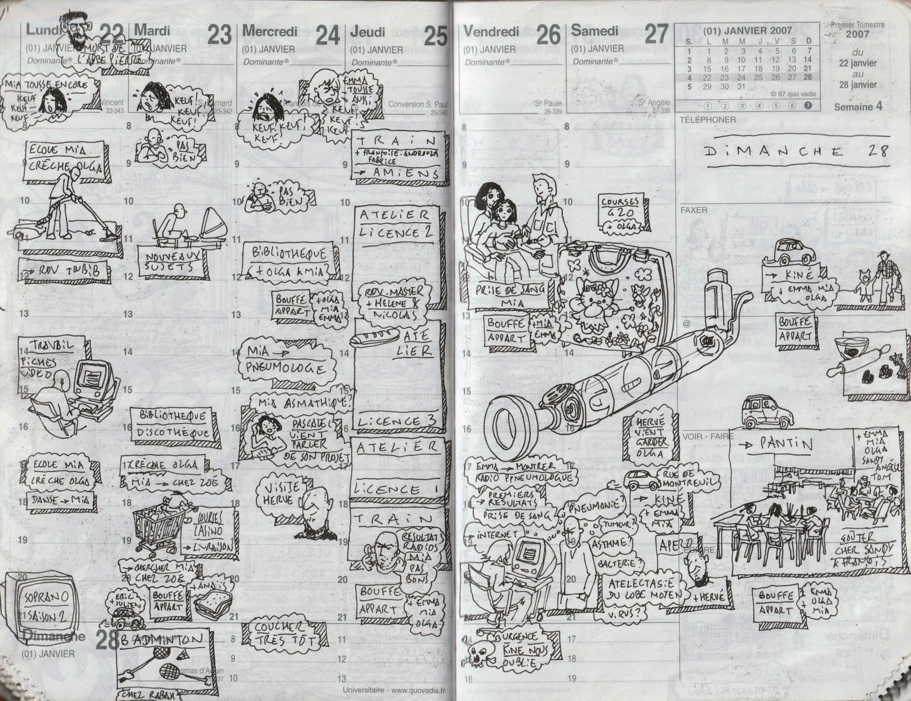 Lundi 22
(01) JANVIER
Dominante®
MORT DE
L'ABBÉ PIERRE
MiA TOUSSE ENCORE
KEUF
KEUF
KEUF
8
ECOLE MIA
CRÈCHE OLGA
10
→ RDV TOUBIB
13
TRAVAIL
FICHES
VIDEO
15
16
ECOLE MIA
CRÈCHE OLGA
DANSE → MIA
19
20
SOPRANO
SAISON 2
Dimanche 28
(01) JANVIER
Mardi 23
JANVIER
Dominante®
KEUF!
KEUF!
8
PAS
BIEN
9
10
NOUVEAUX
SUJETS
12
13
14
15
BIBLIOTHEQUE
DISCOTHÈQUE
CRÈCHE OLGA
MIA → CHEZ ZOÉ
COURSES
→ LIVRAISON
CHERCHER MIA
CHEZ ZOÉ
ERIC
JULIEN
BOUFFE
APPART
+ ANAÏS
BADMINTON
CHEZ RABAH
Mercredi 24
(01) JANVIER
Dominante®
KEUF! KEUF!
KEUF!
9
PAS
BIEN
BIBLIOTHEQUE
+ OLGA & MIA
BOUFFE
APPART
+ OLGA
MIA
EMMA
MIA →
PNEUMOLOGE
15
MIA ASMATHIQUE!
PASCALE
VIENT
PARLER
DE SON PROJET
VISITE
HERVE
19
20
COUCHER
TRÈS TÔT
Jeudi 25
(01) JANVIER
Dominante®
EMMA
TOUSSE
AUSSI
KEUF!
Conversion S. Paul
8
TRAIN
+ FRANÇOISE - ANDROULA
FABRICE
→ AMIENS
10
ATELIER
LICENCE 2
RDV MASTER
+ HELENE &
NICOLAS
ATE
LIER
LICENCE 3
ATELIER
LICENCE 1
TRAIN
RÉSULTAT
RADIOS
MIA
PAS
BONS
BOUFFE
APPART
+ EMMA
MIA
OLGA
Universitaire - www.quovadis.fr
Vendredi 26
(01) JANVIER
Dominante®
Se Paule
8
9
PRISE DE SANG
MIA
BOUFFE
APPART
+ MIA
EMMA
14
15
16
EMMA → MONTRER
RADIO PNEUMOLOGUE
PREMIERS
RÉSULTATS
PRISE DE SANG
INTERNET
URGENCE
KINÉ NOUS
OUBLIE
Samedi 27
(01) JANVIER
Dominante®
Se Angèle
8
9
10
COURSES
G20
+ OLGA
HERVÉ
VIENT
GARDER
OLGA
RUE DE
MONTREUIL
→ KINÉ
+ EMMA
MIA
PNEUMONIE?
TUMEUR?
ASTHME?
BACTERIE?
ATELECTASIE
DU LOBE MOYEN
VIRUS?
APERO
+ HERVÉ
(01) JANVIER 2007
S. L M M J V S D
1 1 2 3 4 5 6 7
2 8 9 10 11 12 13 14
3 15 16 17 18 19 20 21
4 22 23 24 25 26 27 28
5 29 30 31
© 67 quo vadis
1 2 3 4 5 6 7
Premier Trimestre
2007
du
22 janvier
au
28 janvier
Semaine 4
TÉLÉPHONER
DiMANCHE 28
FAXER
→ KINÉ
+ EMMA MIA
OLGA
@
BOUFFE
APPART
VOIR - FAIRE
→ PANTIN
+ EMMA
MIA
OLGA
SANDY
TOM
GOÛTER
CHER SANDY
& FRANÇOIS
BOUFFE
APPART
+ EMMA
OLGA
MIA